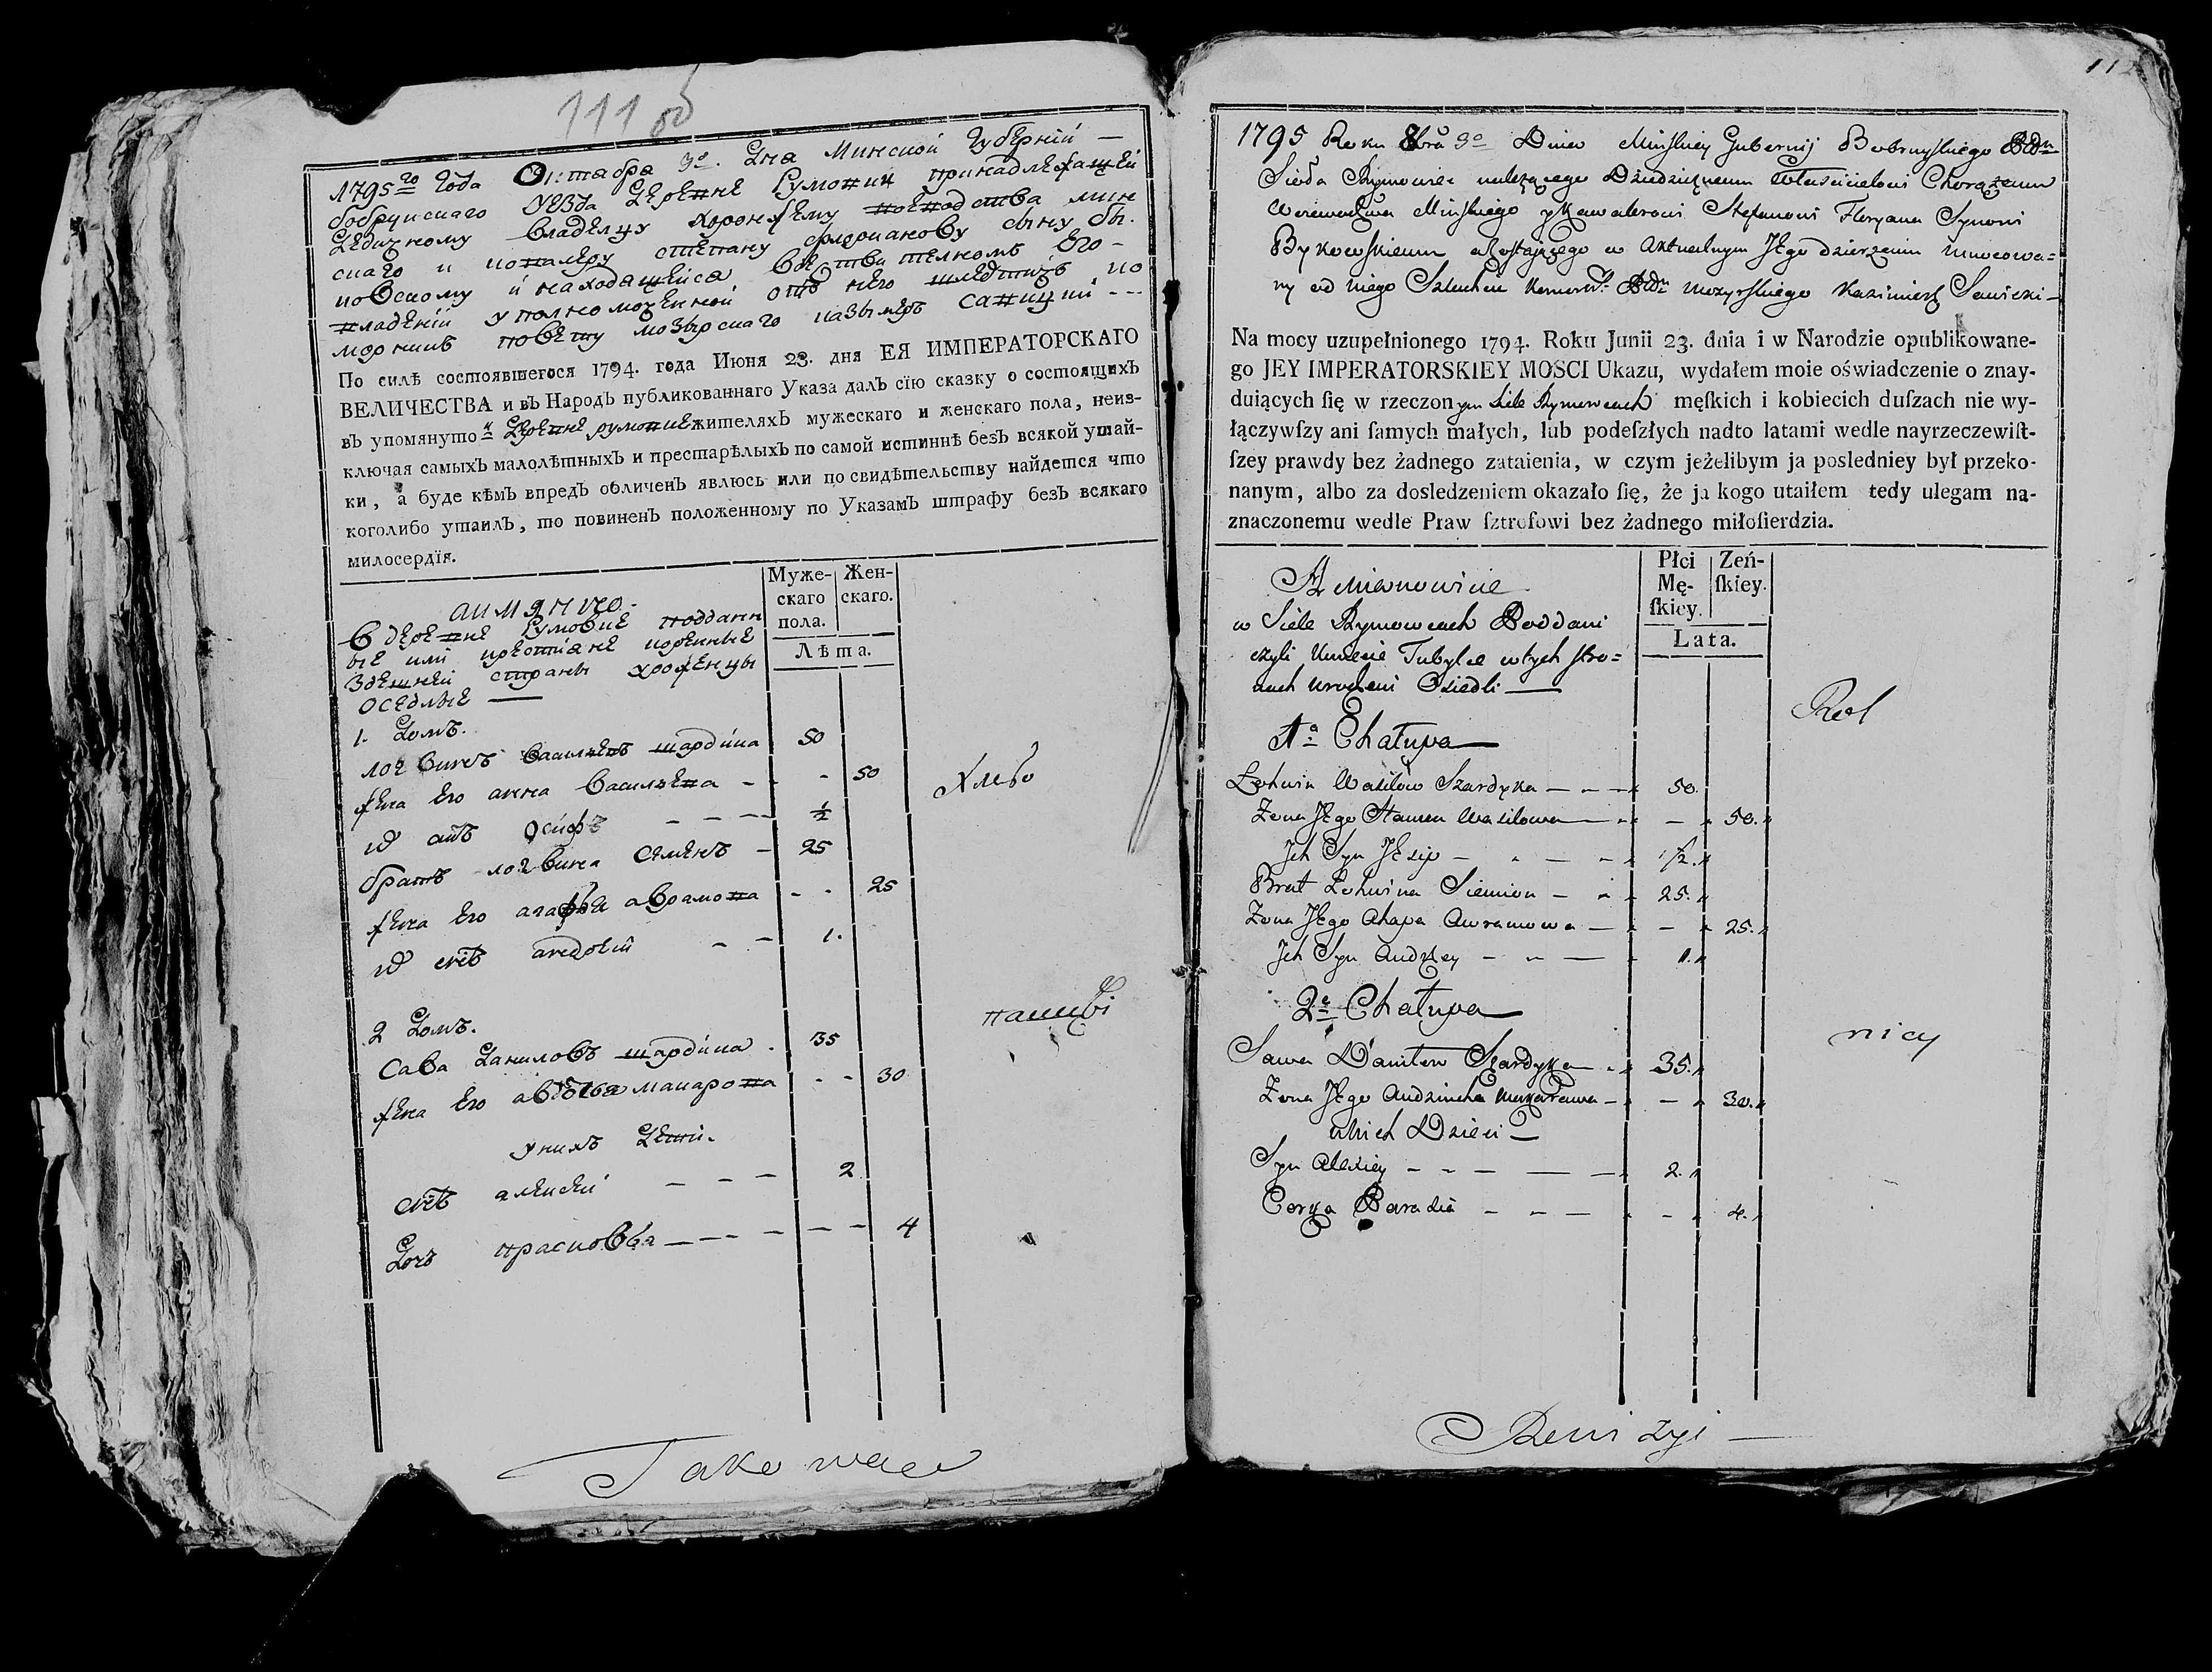 111 об
1795го года Октабра 9го. дня Минской губернїи —
бобруйскаго уезда деревне Румовки принадлежащей
дедичному владелцу хоронжему воеводства мин
скаго и кавалеру степану флориянову сыну бы.
ковскому и находящейся вдействителномъ его —
владенїи уполномоченной отъ него шляхтичь ко
морникъ повету мозырскаго казымеръ савицкий ---
По силѣ состоявшегося 1794. года Июня 23. дня ЕЯ ИМПЕРАТОРСКАГО
ВЕЛИЧЕСТВА и въ Народъ публикованнаго Указа далъ сїю сказку о состоящихъ
въ упомянутой деревне румовке жителяхъ мужескаго и женскаго пола, неиз-
ключая самыхъ малолѣтныхъ и престарѣлыхъ по самой истиннѣ безъ всякой утай-
ки, а буде кѣмъ впредь обличенъ явлюсь или по свидѣтельству найдется что
коголибо утаилъ, то повиненъ положенному по Указамъ штрафу безъ всякаго
милосердїя.
Муже-
скаго
пола.
Жен-
скаго.
Лѣта.
а имянно.
в деревне румовке подданн
ые или крестiяне коренные
здешней страны урожденцы
оседлые —
1. Домъ.
логвинъ василевъ шардыка 50
жена его анна василева - - - 50
их сынъ осифъ - - - ½
братъ логвина семенъ - 25
жена его агафья аврамова - - 25
их сынъ андрей - - 1.
Хлебо
2 Домъ.
Сава даниловъ шардыка . 35
жена его авдотья макарова - - 30
унихъ дети.
сынъ алексей - - - 2
дочь прасковья - - - - - - 4
пашцы
Takowaco
112
1795 Roku 8bra 9o Dnia Mińskiey Gubernij Bobruyskiego Pdu
Sioła Rymowiec należącego Dziedzicznemu Właścicielowi Chorążemu
Woiewodztwa Mińskiego y Kawalerowi Stefanowi Floryana Synowi
Bykowskiemu a zostającego w Aktualnym JEgo dzierżeniu umocowa=
ny od niego Szlachcic Komornik Pdu Mozyrskiego Kazimierz Sawicki —
Na mocy uzupełnionego 1794. Roku Junii 23. dnia i w Narodzie opublikowane-
go JEY IMPERATORSKIEY MOSCI Ukazu, wydałem moie oświadczenie o znay-
duiących ſię w rzeczonym Siele Rymowcach męſkich i kobiecich duſzach nie wy-
łączywſzy ani ſamych małych, lub podeſzłych nadto latami wedle nayrzeczewiſt-
ſzey prawdy bez żadnego zataienia, w czym jeżelibym ja posledniey był przeko-
nanym, albo za dosledzeniem okazało ſię, że ja kogo utaiłem tedy ulegam na-
znaczonemu wedle Praw ſztrofowi bez żadnego miłoſierdzia.
Płci
Mę-
ſkiey.
Zeń-
ſkiey.
Lata.
A Mianowicie
w Siele Rymowcach Poddani
czyli Kmiecie Tubylce w tych stro=
nach urodzeni Osiedli —
1a Chałupa —
Lohwin Wasilow Szardyka — - - 50.
Żona JEgo Hanna Wasilowa — - - 50.
Jch Syn JEsip — - — - 1/2.
Brat Lohwina Siemion — - 25.
Żona JEgo Ahapa Awramowa — - — - 25.
Jch Syn Andrzey — - — - 1.
2a Chałupa —
Sawa Daniłow Szardyka - - 35.
Żona JEgo Audziucha Makarowa — - — - 30.
u Nich Dzieci —
Syn Alexiey - - — — - 2.
Corka Parasia - - — - - - 4.
Rol
nicy
Rewizyi —